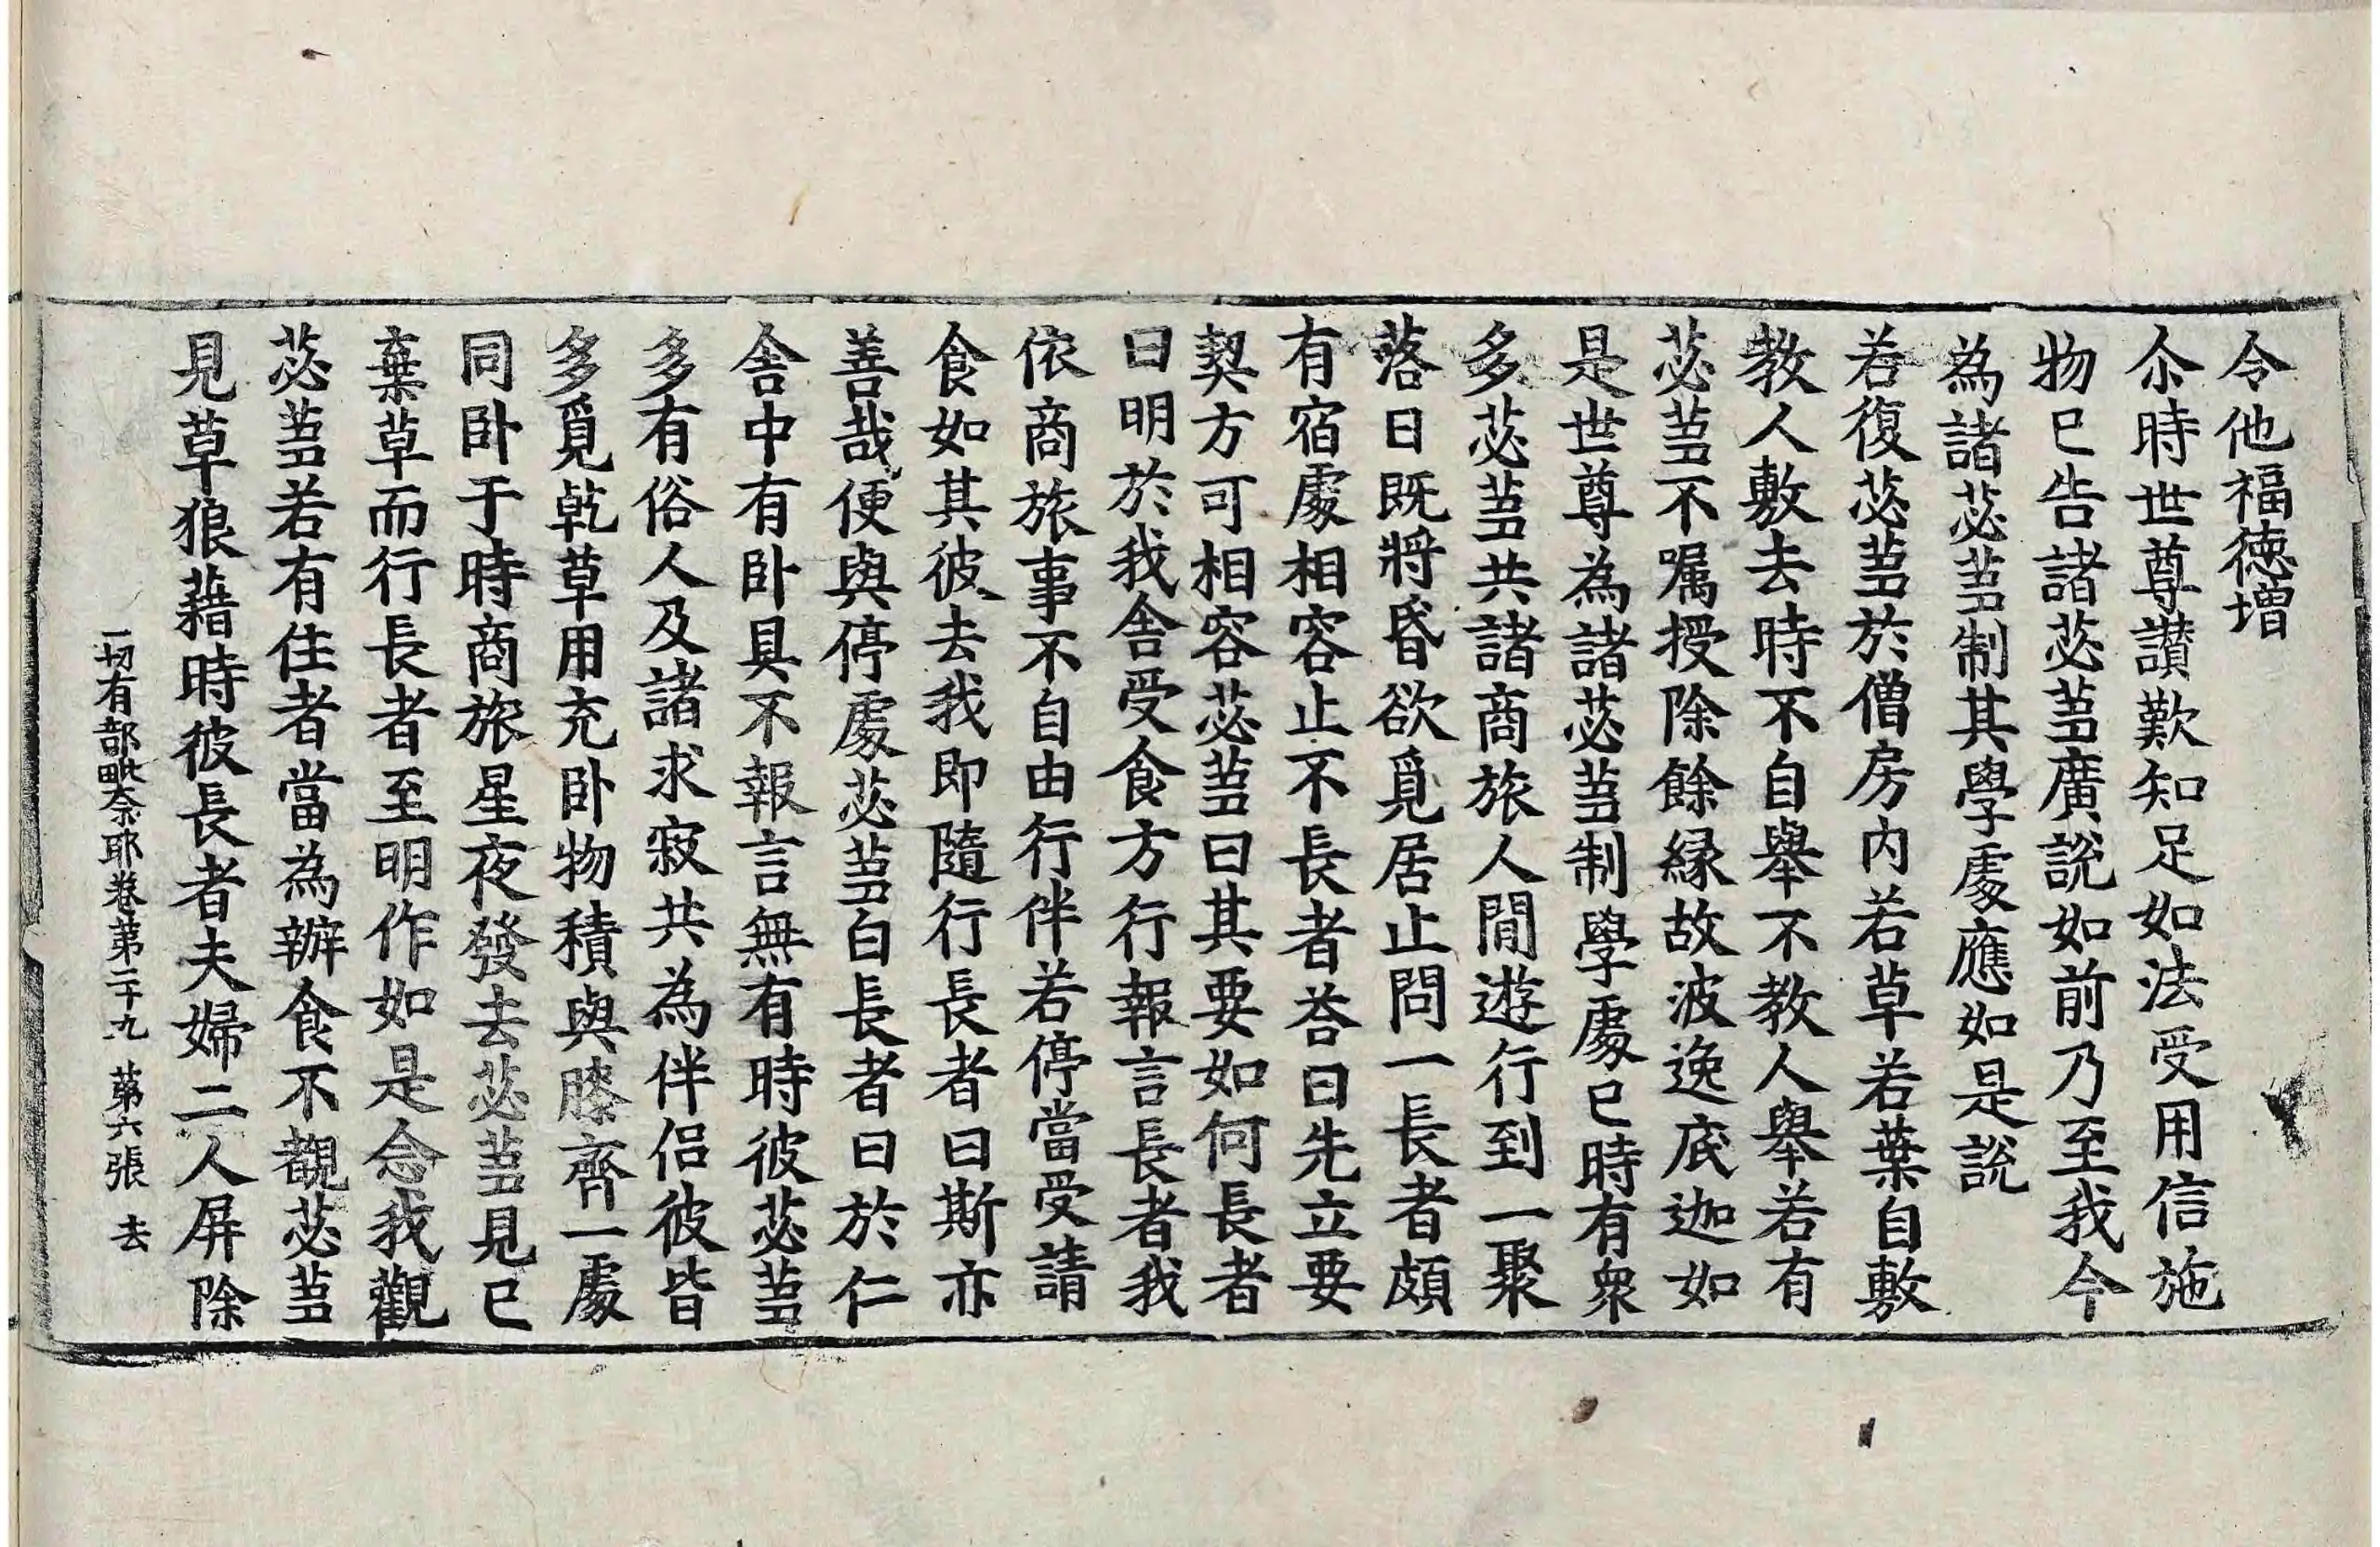 令他福德增
尒時世尊讃歎知足如法受用信施
物已告諸苾芻廣說如前乃至我今
為諸苾芻制其學處應如是說
若復苾芻於僧房內若草若葉自敷
教人敷去時不自舉不教人舉若有
苾芻不囑授除餘緣故波逸底迦如
是世尊為諸苾芻制學處已時有衆
多苾芻共諸商旅人間遊行到一聚
落日既將昏欲覓居止問一長者頗
有宿處相容止不長者荅曰先立要
契方可相容苾芻曰其要如何長者
曰明於我舍受食方行報言長者我
依商旅事不自由行伴若停當受請
食如其彼去我即隨行長者曰斯亦
善哉便與停處苾芻白長者曰於仁
舍中有卧具不報言無有時彼苾芻
多有俗人及諸求寂共為伴侶彼皆
多覓乾草用充卧物積與膝齊一處
同卧于時商旅星夜發去苾芻見已
棄草而行長者至明作如是念我觀
苾芻若有住者當為辦食不覩苾芻
見草狼藉時彼長者夫婦二人屏除
一切有部毗奈耶卷第二十九 第六張 去